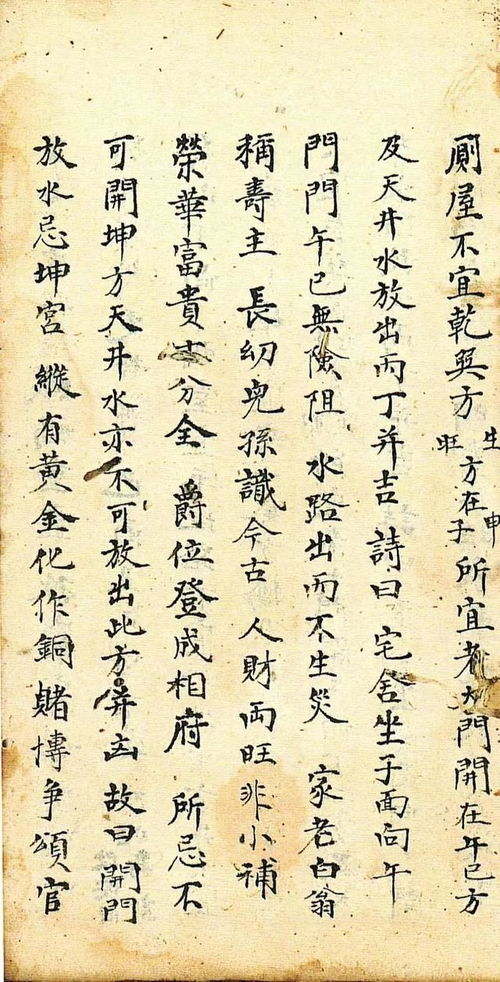 厠屋不宜乾巽方生旺方在申子所宜者大門開在午巳方
及天井水放出丙丁并吉 詩曰 宅舍坐子面向午
門門午巳無險阻 水路出而不生災 家老白翁
稱壽主 長幼兒孫識今古 人財両旺非小補
榮華富貴十分全 爵位登成相府 所忌不
可開坤方天井水亦不可放出此方凶 故曰 開門
放水忌坤宮 縱有黃金化作銅 賭博爭頌官